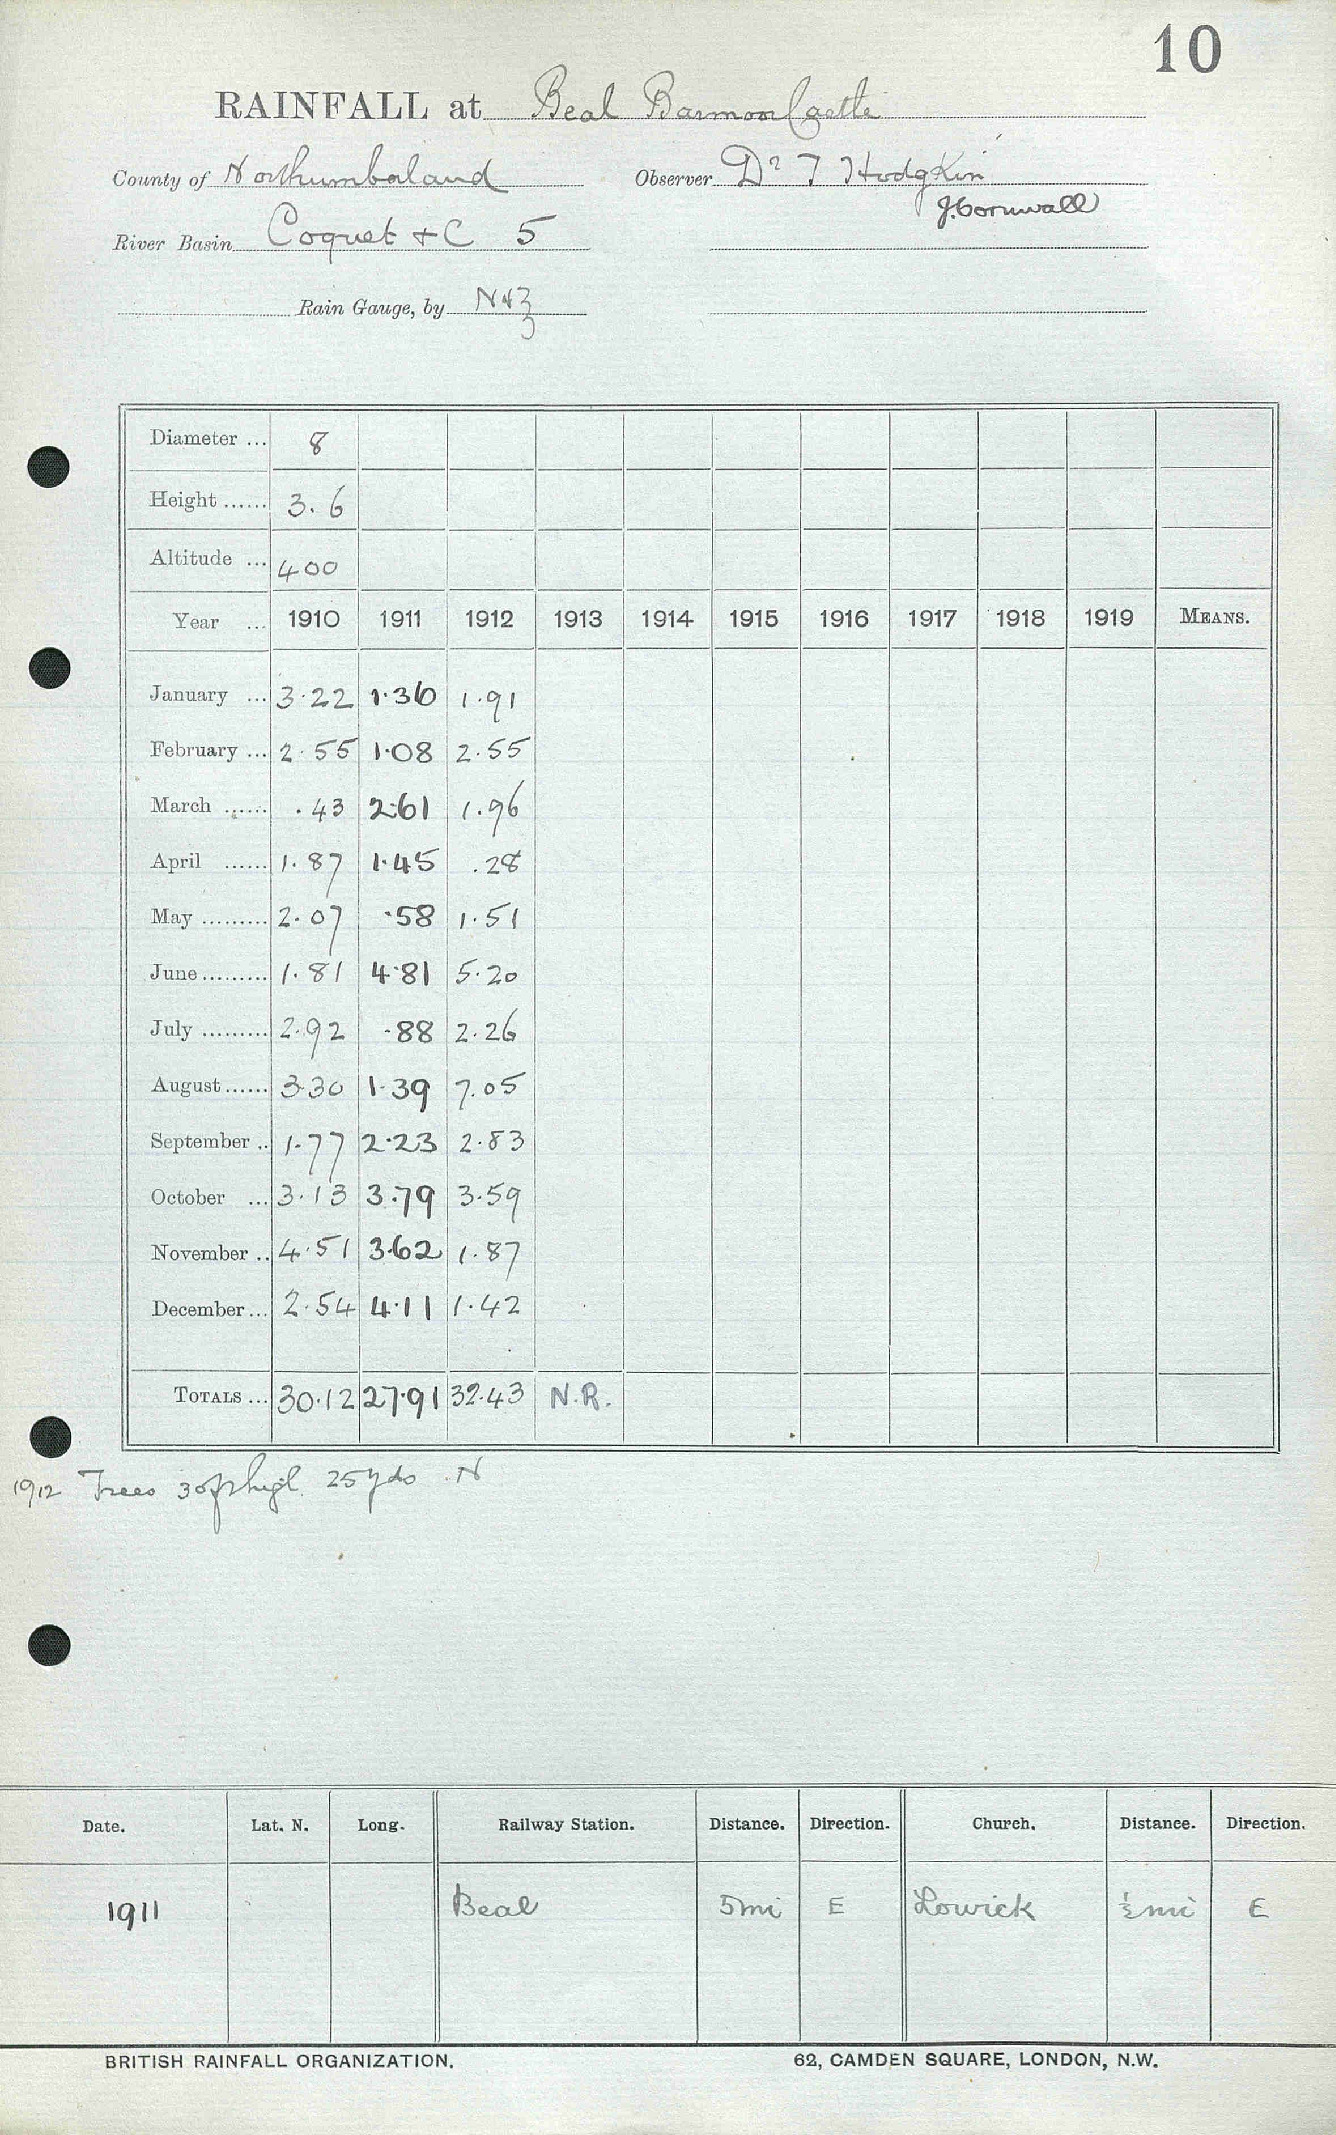 10
RAINFALL at Beal Barmoor Castle
County of Northumberland Observer Dr T Hodgkin
J. Cornwall
River Basin Coquet &C 5
Rain Gauge, by N&Z
Diameter ... 8
Height ...... 3.6
Altitude ... 400
Year ... 1910 1911 1912 1913 1914 1915 1916 1917 1918 1919 MEANS.
January ... 3.22 1.36 1.91
February ... 2.55 1.08 2.55
March ...... .43 2.61 1.96
April ...... 1.87 1.45 .28
May ......... 2.07 .58 1.51
June ......... 1.81 4.81 5.20
July ......... 2.92 .88 2.26
August ...... 3.30 1.39 7.05
September .. 1.77 2.23 2.83
October ... 3.13 3.79 3.59
November .. 4.51 3.62 1.87
December ... 2.54 4.11 1.42
TOTALS ... 30.12 27.91 32.43 N.R.
1912 Trees 30ft high 25 yds N
Date. Lat. N. Long. Railway Station. Distance. Direction. Church. Distance. Direction.
1911 Beal 5mi E Lowick ½mi E
BRITISH RAINFALL ORGANIZATION. 62, CAMDEN SQUARE, LONDON, N.W.